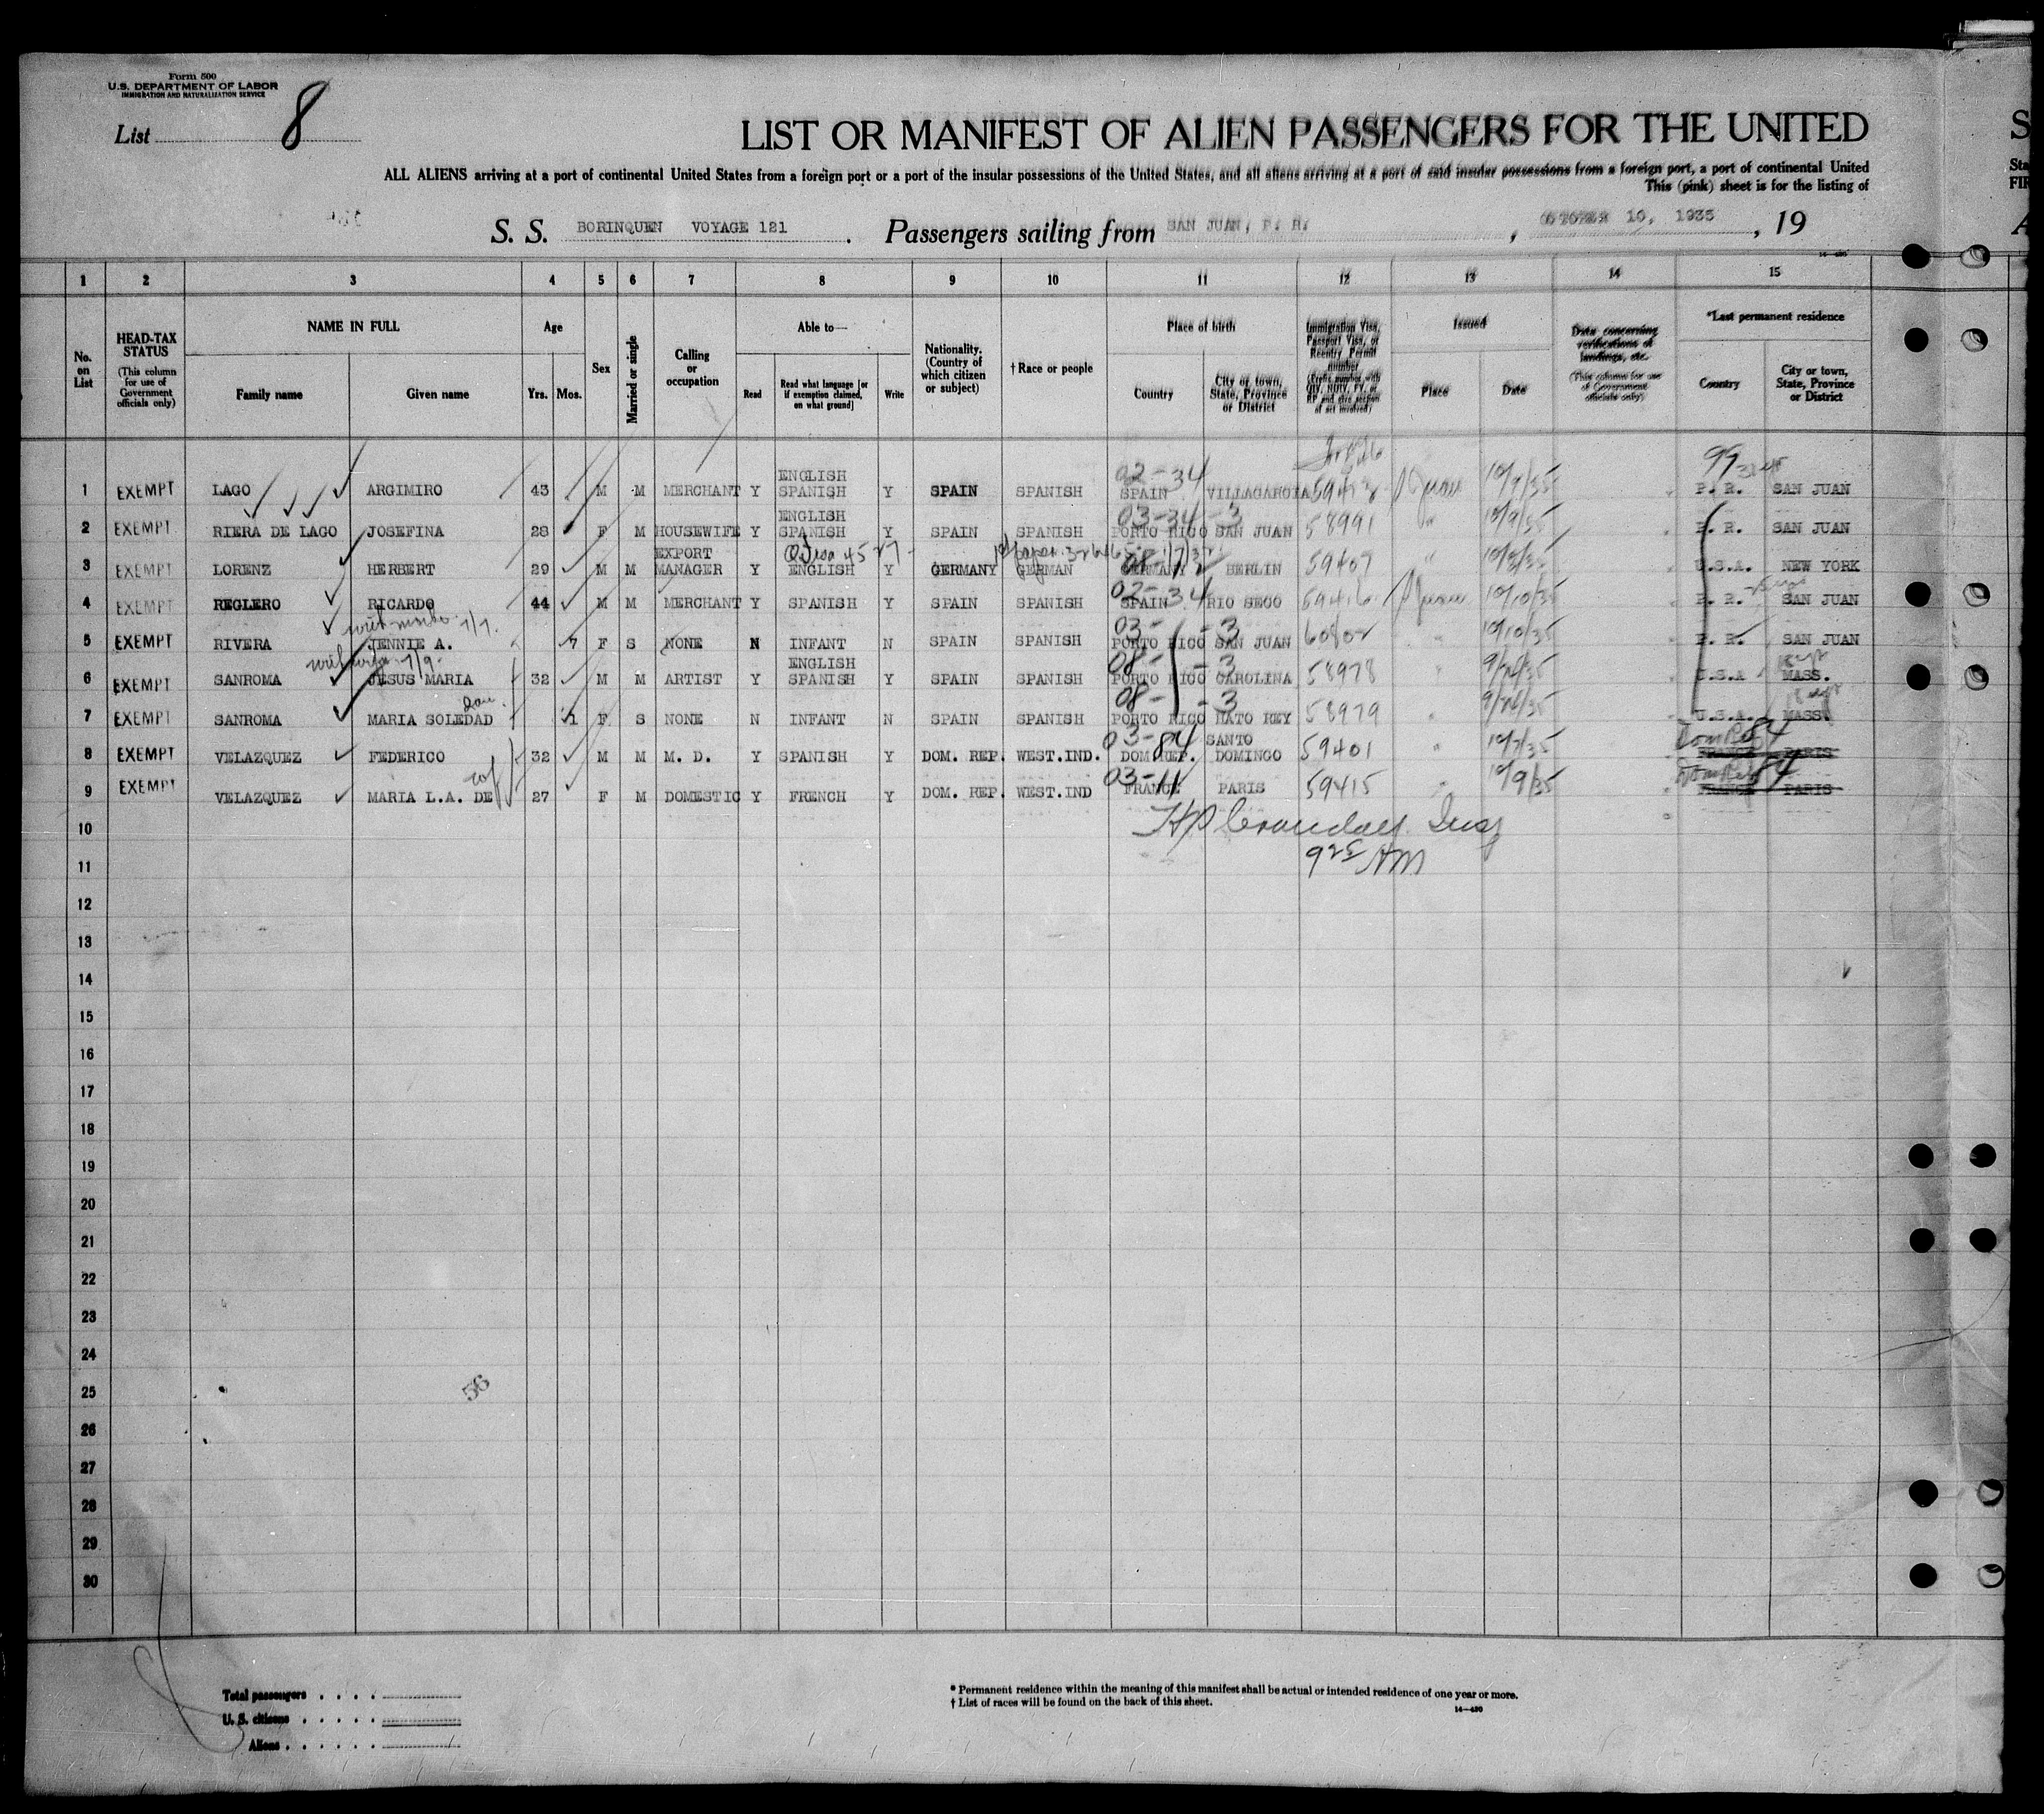 Form 500
U.S. DEPARTMENT OF LABOR
IMMIGRATION AND NATURALIZATION SERVICE
List 8
LIST OR MANIFEST OF ALIEN PASSENGERS FOR THE UNITED
ALL ALIENS arriving at a port of continental United States from a foreign port or a port of the insular possessions of the United States, and all aliens arriving at a port of said insular possessions from a foreign port, a port of continental United
This (pink) sheet is for the listing of
S. S. BORINQUEN VOYAGE 121 . Passengers sailing from SAN JUAN, P. R. , OCTOBER 10, 1935 , 19
1 2 3 4 5 6 7 8 9 10 11 12 13 14 15
No. on List
HEAD-TAX STATUS (This column for use of Government officials only)
NAME IN FULL
Family name
Given name
Age
Yrs. Mos.
Sex
Married or single
Calling or occupation
Able to—
Read
Read what language [or if exemption claimed, on what ground]
Write
Nationality. (Country of which citizen or subject)
† Race or people
Place of birth
Country
City or town, State, Province or District
Immigration Visa, Passport Visa, or Reentry Permit number
(Prefix number with QIV, NQIV, PV, or RP and give section of act involved)
Issued
Place
Date
Data concerning verifications of landings, etc.
(This column for use of Government officials only)
*Last permanent residence
Country
City or town, State, Province or District
99
02-34
1 EXEMPT LAGO ARGIMIRO 43 M M MERCHANT Y ENGLISH SPANISH Y SPAIN SPANISH SPAIN VILLAGARCIA S Juan 10/9/35 P. R. SAN JUAN
03-34 -3
2 EXEMPT RIERA DE LAGO JOSEFINA 28 F M HOUSEWIFE Y ENGLISH SPANISH Y SPAIN SPANISH PORTO RICO SAN JUAN 58991 " 10/9/35 P. R. SAN JUAN
3 EXEMPT LORENZ HERBERT 29 M M EXPORT MANAGER Y ENGLISH Y GERMANY GERMAN GERMANY BERLIN 59407 " U.S.A. NEW YORK
02-34
4 EXEMPT REGLERO RICARDO 44 M M MERCHANT Y SPANISH Y SPAIN SPANISH SPAIN RIO SECO 59416 S Juan 10/10/35 P. R. SAN JUAN
03- -3
5 EXEMPT RIVERA JENNIE A. 7 F S NONE N INFANT N SPAIN SPANISH PORTO RICO SAN JUAN " 10/10/35 P. R. SAN JUAN
08- -3
6 EXEMPT SANROMA JESUS MARIA 32 M M ARTIST Y ENGLISH SPANISH Y SPAIN SPANISH PORTO RICO CAROLINA 58978 " U.S.A MASS.
08- -3
7 EXEMPT SANROMA MARIA SOLEDAD 1 F S NONE N INFANT N SPAIN SPANISH PORTO RICO HATO REY 58979 " U.S.A. MASS.
03-84 Dom Rep 84
8 EXEMPT VELAZQUEZ FEDERICO 32 M M M. D. Y SPANISH Y DOM. REP. WEST.IND. DOM REP. SANTO DOMINGO 59401 " 10/7/35 FRANCE PARIS
03-11 Dom Rep 84
9 EXEMPT VELAZQUEZ MARIA L.A. DE 27 F M DOMESTIC Y FRENCH Y DOM. REP. WEST.IND FRANCE PARIS 59415 " 10/9/35 FRANCE PARIS
10
11
12
13
14
15
16
17
18
19
20
21
22
23
24
25
26
27
28
29
30
56
Total passengers . . . .
U. S. citizens . . . . .
Aliens . . . . . .
* Permanent residence within the meaning of this manifest shall be actual or intended residence of one year or more.
† List of races will be found on the back of this sheet.
14—430